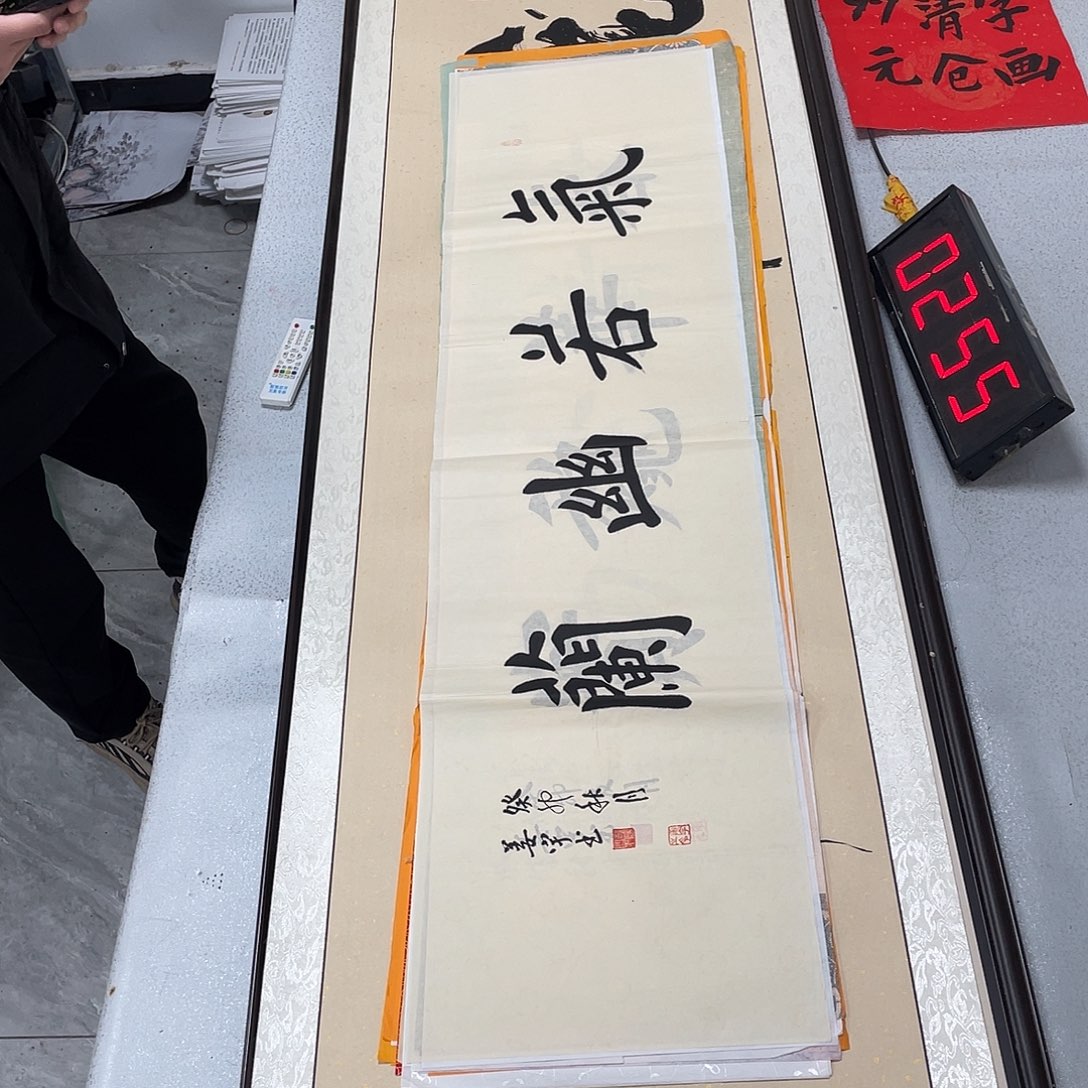 氣若幽蘭
癸卯秋月
姜
清字
元仓画
0255